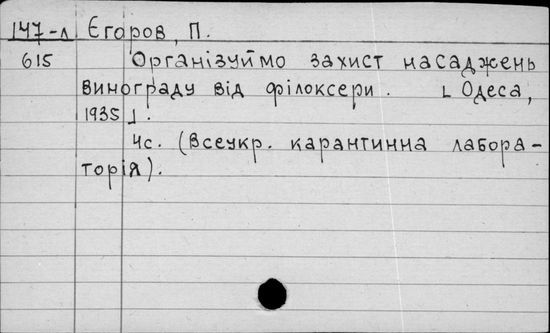 147-л Єгоров, П.
615 Організуймо захист насаджень
винограду від філоксери. [Одеса,
1935].
4с. (Всеукр. карантинна лабора-
торія).